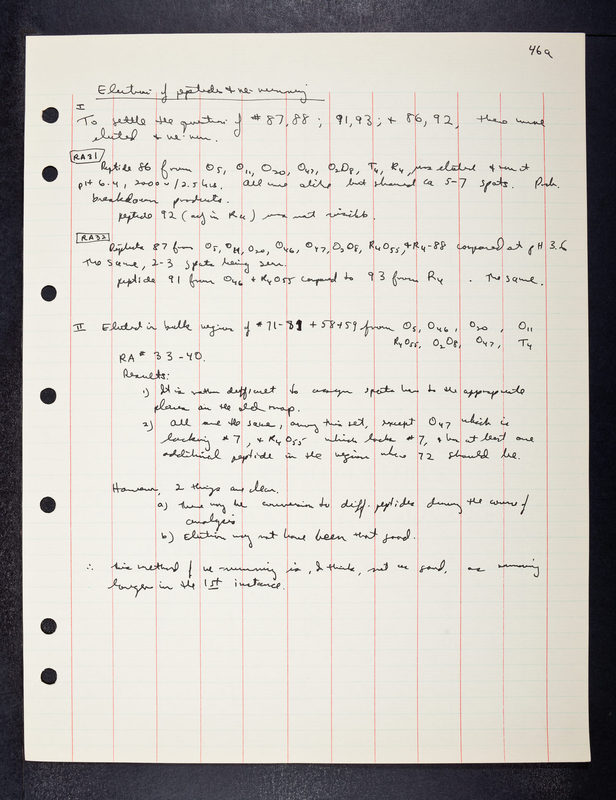 46a
Elution of peptides & re-running
I
To settle the question of # 87, 88 ; 91, 93 ; & 86, 92, these were
eluted & re-run.
RA31
Peptide 86 from O5, O11, O20, O47, O2O8, T4, R4, was eluted & run at
pH 6.4, 2000 v / 2.5 hrs. All were alike but showed ca 5-7 spots. Prob.
breakdown products.
peptide 92 (only in R4) was not visible.
RA32
Peptide 87 from O5, O11, O20, O46, O47, O2O8, R4O55, & R4-88 compared at pH 3.6
The same, 2-3 spots being seen.
peptide 91 from O46 & R4O55 compared to 93 from R4. The same.
II Eluted in bulk region of # 71-81 + 58+59 from O5, O46, O20, O11
R4O55, O2O8, O47, T4
RA # 33-40.
Results:
1) It is rather difficult to assign spots here to the appropriate
places on the old map.
2) All are the same, among this set, except O47 which is
lacking # 7, & R4O55 which lacks # 7, & has at least one
additional peptide in the region where 72 should be.
However, 2 things are clear.
a) There may be conversion to diff. peptides during the course of
analysis
b) Elution may not have been that good.
∴ this method of re-running is, I think, not as good, as running
longer in the 1st instance.